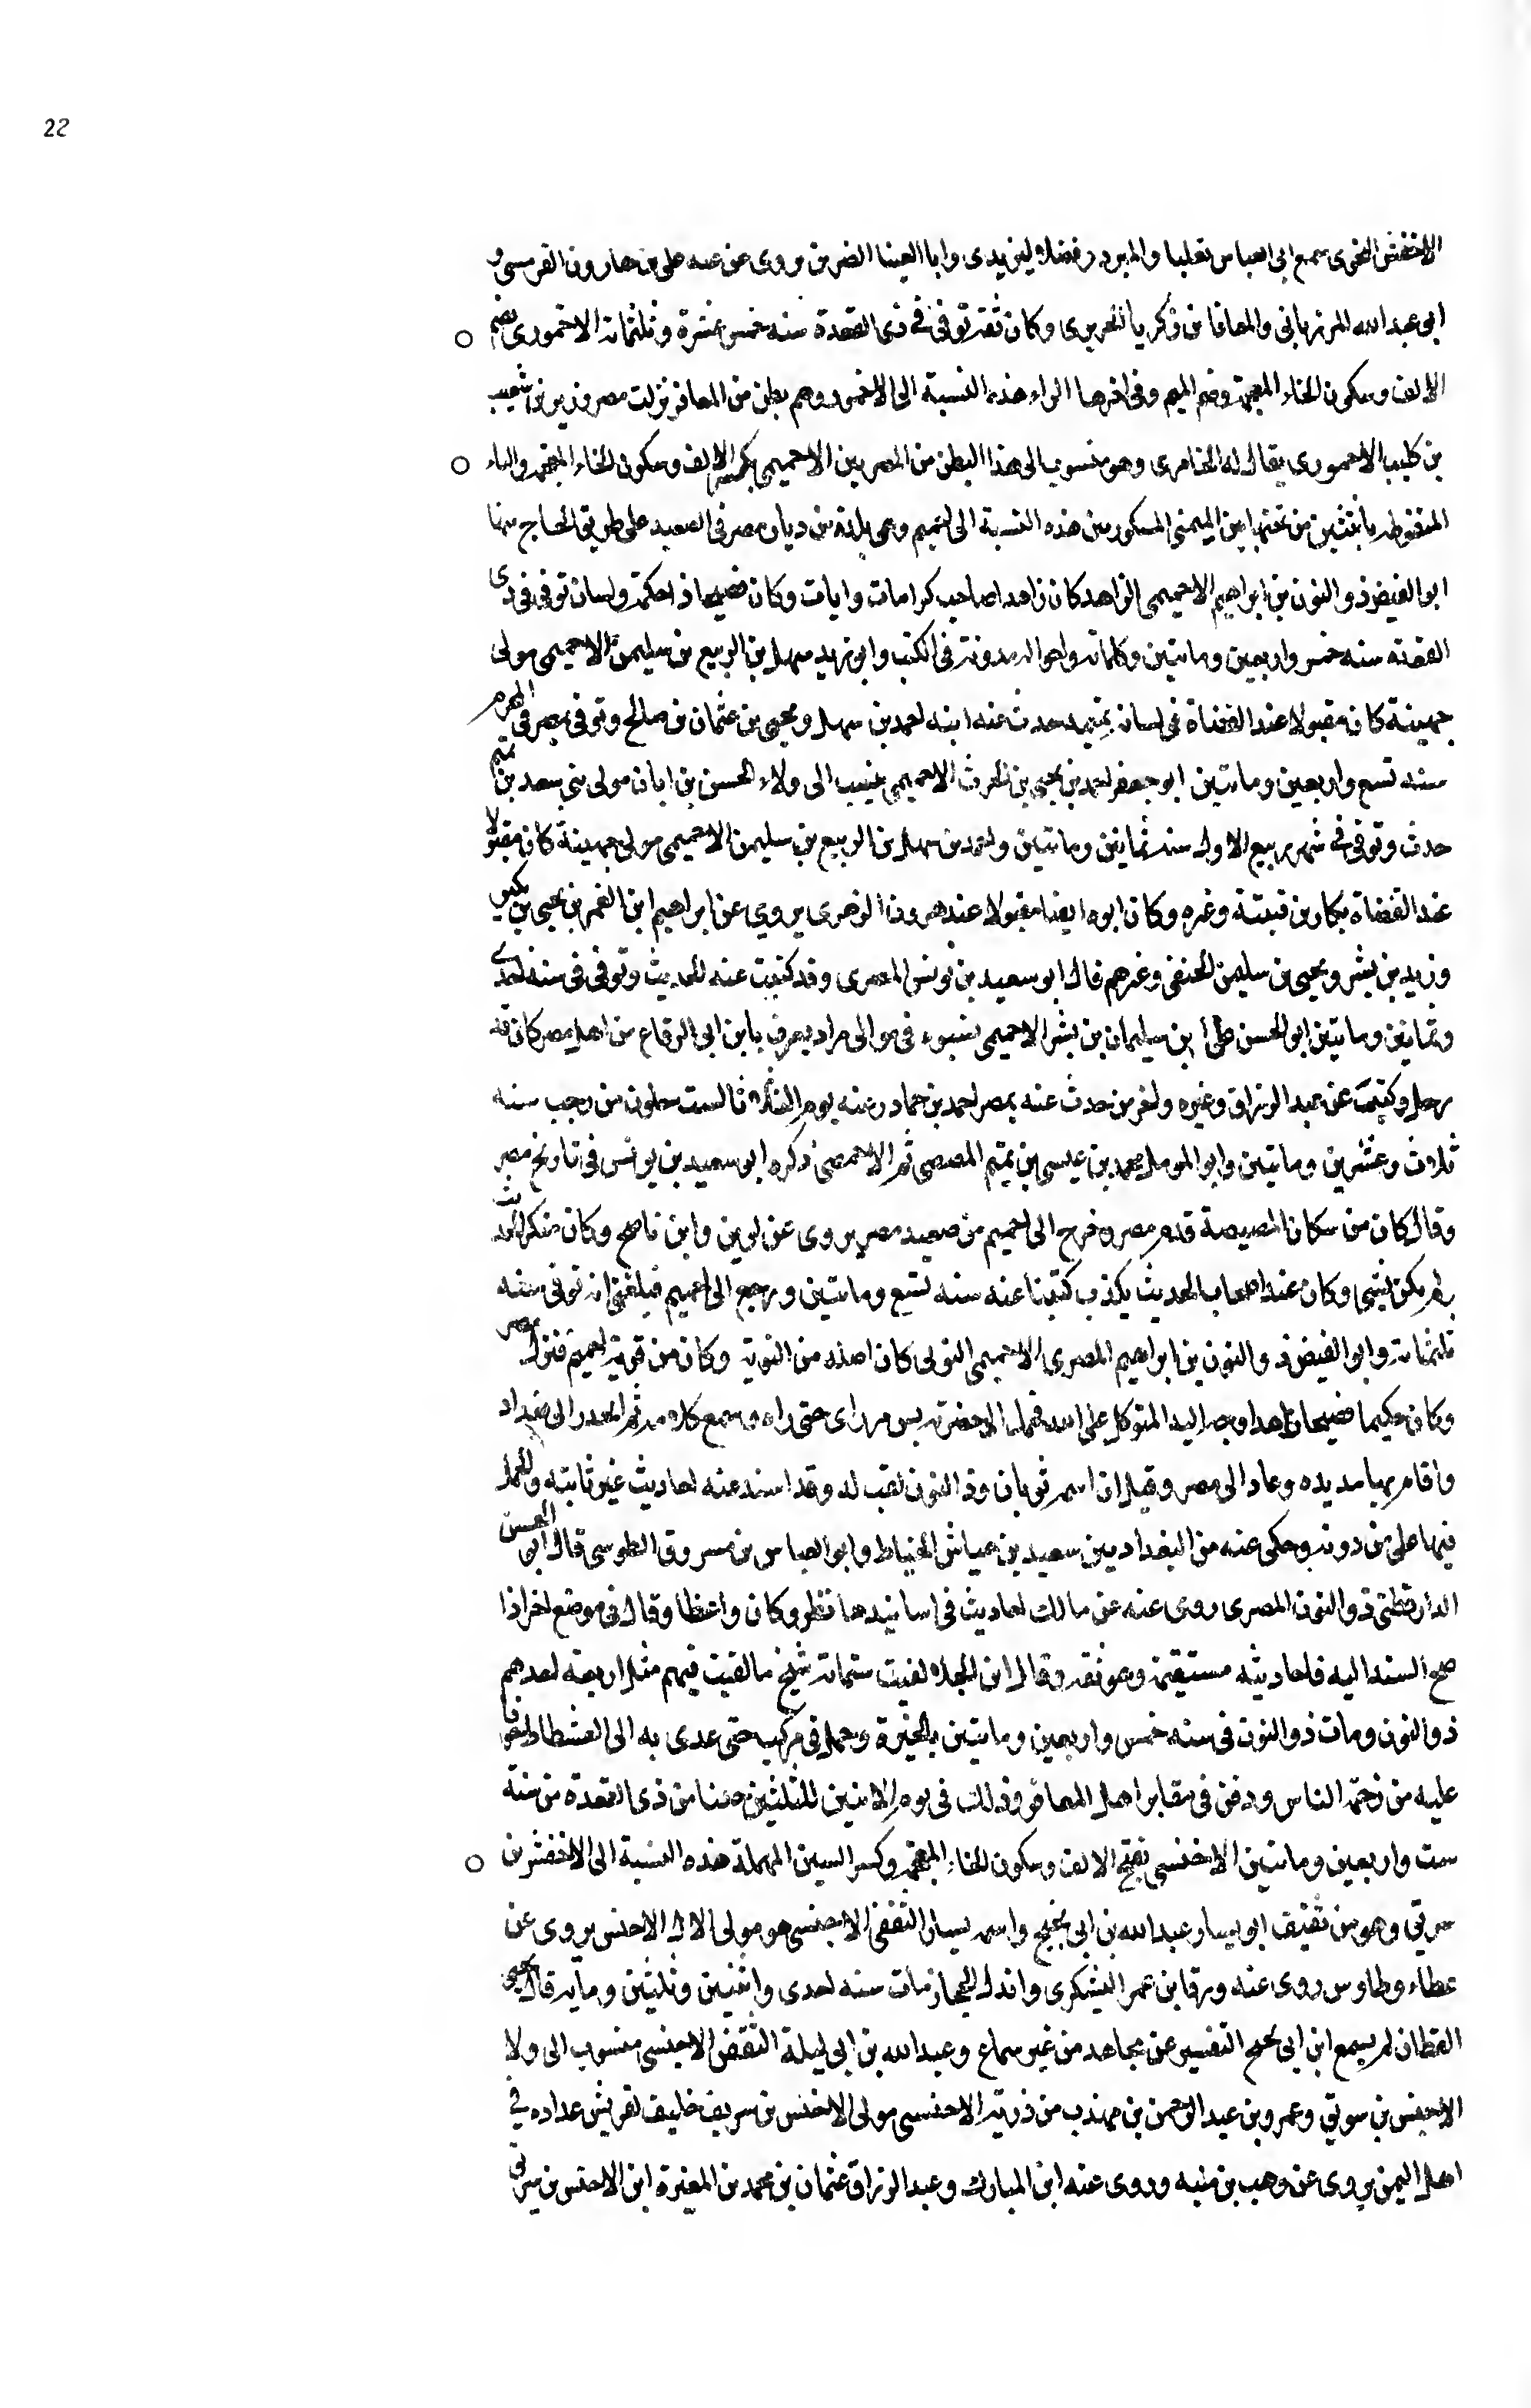 22
الاخفش النحوى سمع ابى العباس ثعلبا والمبرد وفضلا اليزيدى وابا العينا الضرير روى عنه على بن هارون القرميسى و
ابو عبد الله المرزبانى والمعافا بن زكريا الجريرى وكان ثقة توفى فى ذى القعدة سنه خمس عشرة وثلثمائة الاخمورى بضم
الالف وسكون الخاء المعجمة وضم الميم وفى اخرها الراء هذه النسبة الى الاخمور وهم بطن من المعافر نزلت مصر وزيد بن شعيب
بن كليب الاخمورى يقال له الخامرى وهو منسوب الى هذا البطن من المصريين الاخميمى بكسر الالف وسكون الخاء المعجمه والياء
المنقوطه باثنتين من تحتها بين الميمين المكسورتين هذه النسبة الى اخميم وهى بلدة من ديار مصر فى الصعيد على طريق الحاج منها
ابو الفيض ذو النون بن ابراهيم الاخميمى الزاهد كان زاهدا صاحب كرامات وايات وكان فصيحا ذا حكمة ولسان توفى فى ذى
القعدة سنه خمس واربعين ومائتين وكلماته واحواله مدونة فى الكتب وابو زيد سهل بن الربيع بن سليمن الاخميمى مولى
جهينة كان مقبولا عند القضاة فى لسان حدث عنه ابنه احمد بن سهل ويحيى بن عثمان بن صالح وتوفى بمصر فى المحرم
سنه تسع واربعين ومائتين ابو جعفر احمد بن يحيى بن الحرث الاخميمى ينسب الى ولاء الحسن بن ابان مولى بنى سعد بن تميم
حدث وتوفى فى شهر ربيع الاول سنه ثمانين ومائتين واحمد بن سهل بن الربيع بن سليمن الاخميمى مولى جهينة كان مقبولا
عند القضاة بكار بن قتيبة وغيره وكان ابوه ايضا مقبولا عند هرون الزهرى يروي عن ابراهيم ابن الغمر بن يحيى بن بكير
وزيد بن بشر ويحيى بن سليمن الجعفى وغيرهم قال ابو سعيد بن يونس المصرى وقد كتبت عنه الحديث وتوفى فى سنه احدى
وثمانين ومائتين ابو الحسن على بن سليمان بن بشر الاخميمى ينسبوه فى موالى مراد يعرف بابن ابى الرقاع من اهل مصر كان قد
رحل وكتب عن عبد الرزاق وغيره واخر من حدث عنه بمصر احمد بن حماد زغبه يوم الثلاثا لست خلون من رجب سنه
ثلاث وعشرين ومائتين وابو المومل محمد بن عيسى بن تميم المصيصى ثم الاخميمى ذكره ابو سعيد بن يونس فى تاريخ مصر
وقال كان من سكان المصيصة قدم مصر وخرج الى اخميم من صعيد مصر يروى عن لوين وابن ناصح وكان منكر الحديث
ولم يكن بشى وكان عند اصحاب الحديث يكذب كتبنا عنه سنه تسع ومائتين ورجع الى اخميم فبلغنى انه توفى سنه
ثلثمائة وابو الفيض ذو النون بن ابراهيم المصرى الاخميمى النوبى كان اصله من النوبة وكان من قرية اخميم فنزل مصر
وكان حكيما فصيحا زاهدا وجه اليه المتوكل على الله فحمل الى حضرته بسر من راى حتى راه وسمع كلامه ثم انحدر الى بغداد
واقام بها مديده وعاد الى مصر وقيل ان اسمه ثوبان وذا النون لقب له وقد اسند عنه احاديث غير ثابته والحمل
فيها على من دونه وحكى عنه من البغداديين سعيد بن عياش الخياط وابو العباس بن مسروق الطوسى قال ابو الحسن
الدارقطنى ذو النون المصرى روى عنه عن مالك احاديث فى اسانيدها نظر وكان واعظا وقال فى موضع اخر اذا
صح السند اليه فاحاديثه مستقيمة وهو ثقه وقال ابن الجلا لقيت ستمائة شيخ ما لقيت فيهم مثل اربعة احدهم
ذو النون ومات ذو النون فى سنه خمس واربعين ومائتين بالجيزة وحمل فى مركب حتى عدى به الى الفسطاط خوفا
عليه من زحمة الناس ودفن فى مقابر اهل المعافر وذلك فى يوم الاثنين لليلتين خلتا من ذى القعدة من سنة
ست واربعين ومائتين الاخنسى بفتح الالف وسكون الخاء المعجمه وكسر السين المهملة هذه النسبة الى الاخنس بن
شريق وهو من ثقيف ابو يسار عبد الله بن ابى نجيح واسمه يسار الثقفى الاخنسى هو مولى لال الاخنس يروى عن
عطاء وطاوس روى عنه ورقا بن عمر اليشكرى واهل الحجاز مات سنه احدى واثنين وثلثين ومايه قال يحيى
القطان لم يسمع ابن ابى نجيح التفسير عن مجاهد من غير سماع وعبد الله بن ابى ليلة الثقفى الاخنسى منسوب الى ولا
الاخنس بن شريق وعمرو بن عبد الرحمن بن مهذب من ذرية الاخنسى مولى الاخنس بن شريف خليف لقريش عداده فى
اهل اليمن يروى عن وهب بن منبه وروى عنه ابن المبارك وعبد الرزاق عثمان بن محمد بن المغيرة ابن الاخنس بن شريق